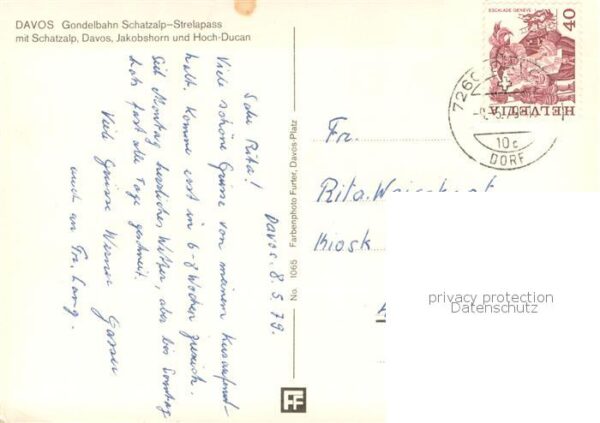 DAVOS Gondelbahn Schatzalp–Strelapass
mit Schatzalp, Davos, Jakobshorn und Hoch-Ducan
Davos. 8. 5. 79.
Salü Rita!
Viele schöne Grüsse von meinem Kuraufent-
halt. Komme erst in 6-8 Wochen zurück.
Seit Montag herrliches Wetter, aber bis Sonntag
hat's fast alle Tage geschneit.
Viele Grüsse Werner Gasser
auch an Frl. Lang.
No. 1065 Farbenphoto Furter, Davos-Platz
FF
ESCALADE GENÈVE
40
HELVETIA
7260
10c
DORF
Fr.
Rita
Kiosk
privacy protection
Datenschutz